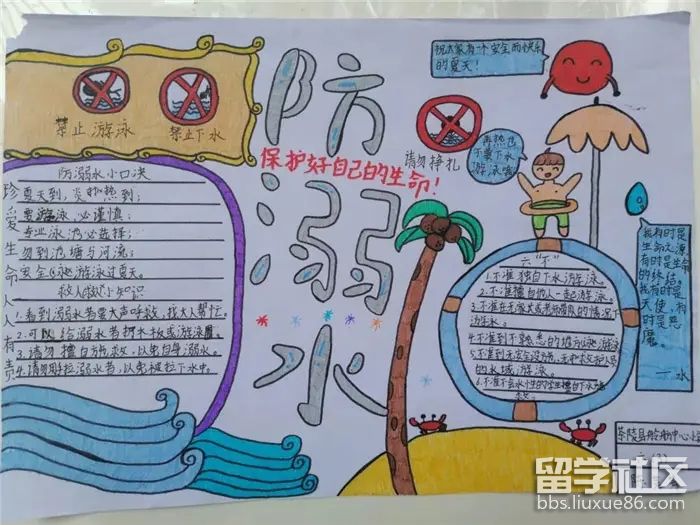 祝大家有一个安全而快乐
的夏天!
禁止游泳
禁止下水
请勿挣扎
再热也
不要下水
游泳哦
防
溺
水
保护好自己的生命!
珍爱生命人人有责
防溺水小口决
夏天到,炎热到;
要游泳,必谨慎;
专业泳池必选择;
勿到池塘与河流;
安全
游泳过夏天。
救人
小知识
1.看到溺水者要大声呼救,找大人帮忙。
2.可以给溺水者抛木板或游泳圈。
3.请勿擅自施救,以免自身溺水。
4.请勿用手拉溺水者,以免被拉下水中。
六“不”
1.不准独自下水游泳。
2.不准擅自他人一起游泳。
3.不准在无家长或老师带队的情况下
游泳。
4.不准到不熟悉的地方
游泳
5.不准到无安全设施、无救护人员
的水域游泳。
6.不准不会水性的学生擅自下水施
救。
我有时是
生命之源
有时是生命
的终结。
我有时是
天使,有
时是恶
魔。
——水
茶陵县
中心小学
留学社区
bbs.liuxue86.com